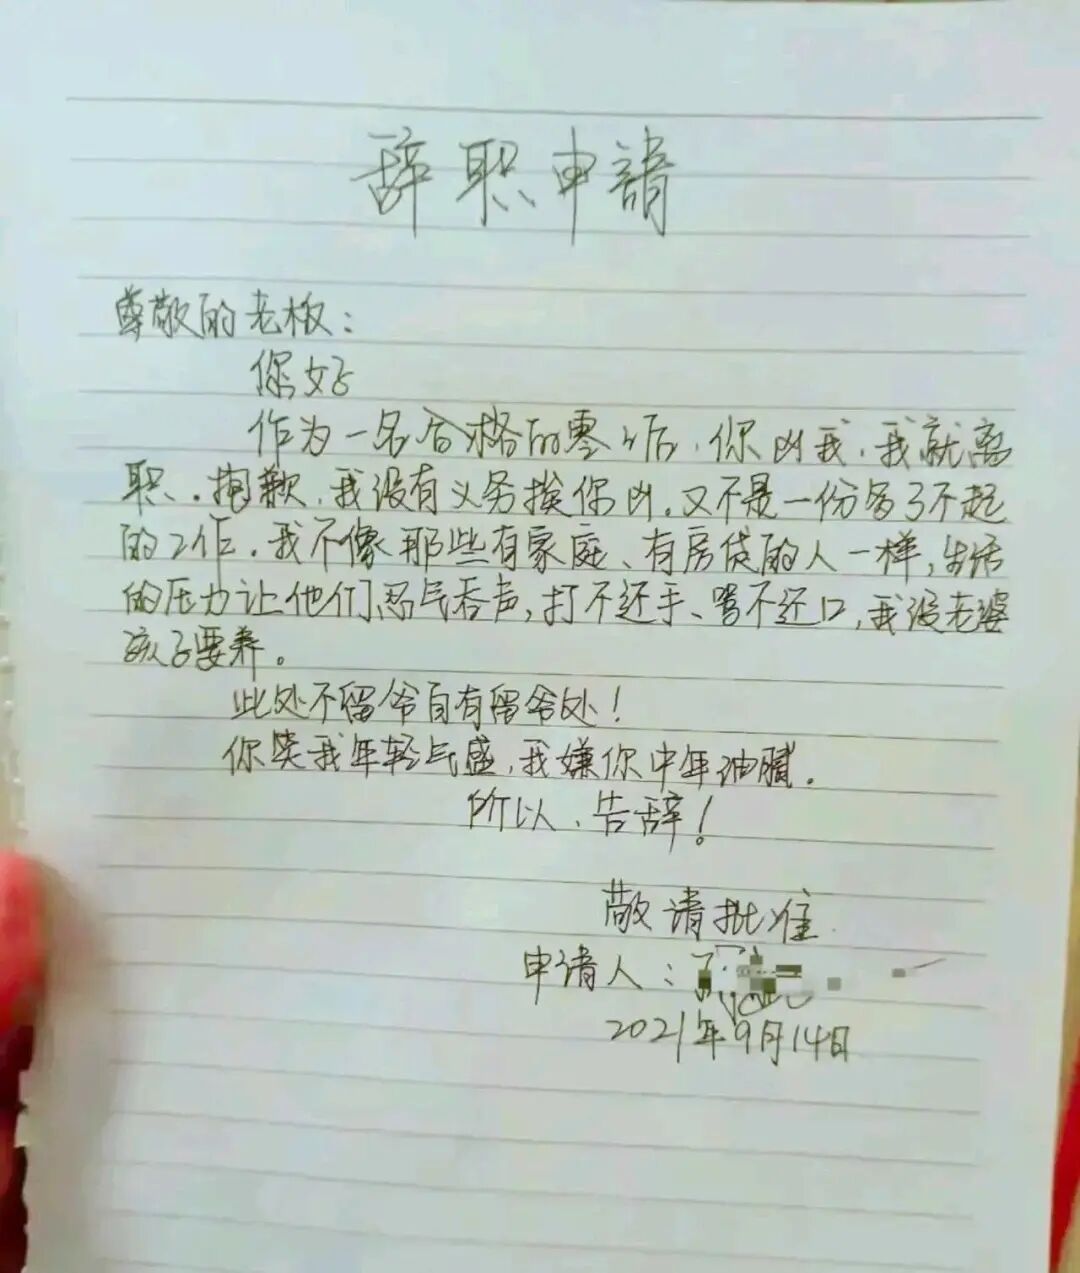 辞职申請
尊敬的老板：
你好
作为一名合格的零零后，你凶我，我就离
职。抱歉，我没有义务挨你凶。又不是一份多了不起
的工作。我不像那些有家庭、有房贷的人一样，生活
的压力让他们忍气吞声，打不还手、骂不还口，我没老婆
孩子要养。
此处不留爷自有留爷处！
你笑我年轻气盛，我嫌你中年油腻。
所以，告辞！
敬请批准
申请人：
2021年9月14日